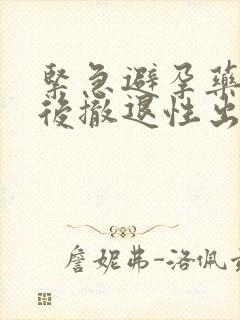 緊急避孕藥
後撤退性出
詹妮弗-洛佩